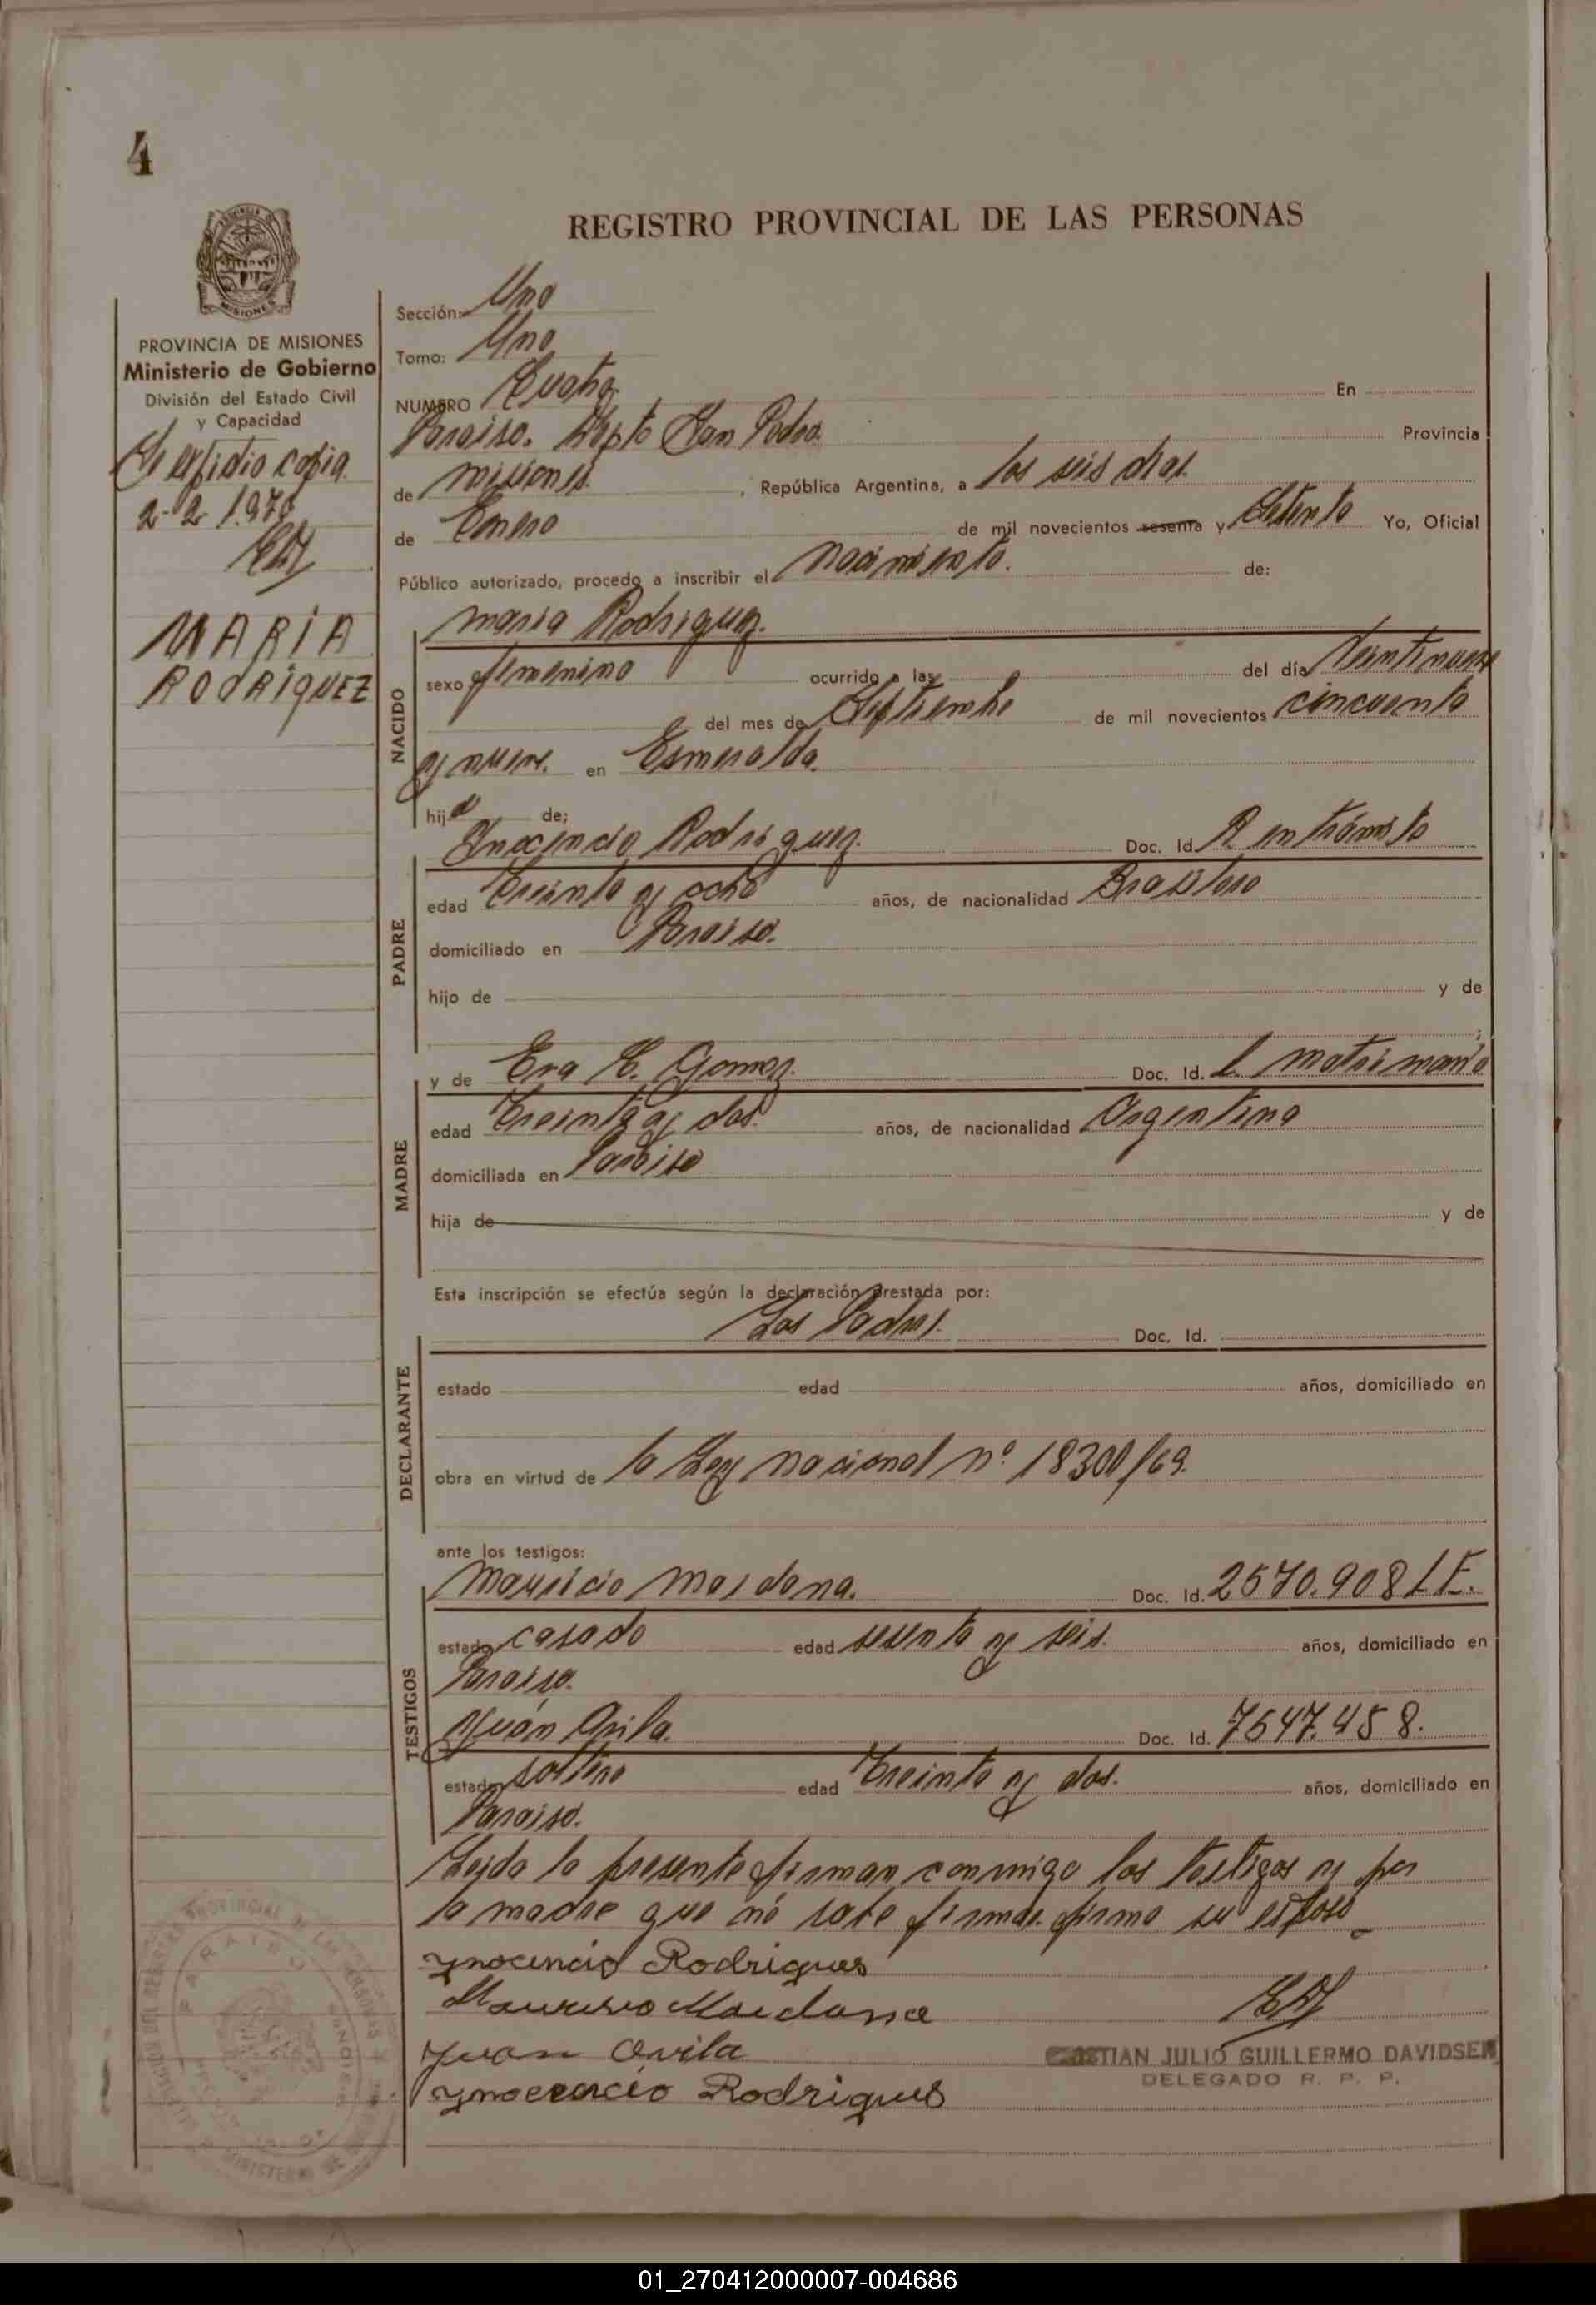 4
REGISTRO PROVINCIAL DE LAS PERSONAS
MISIONES
PROVINCIA DE MISIONES
Ministerio de Gobierno
División del Estado Civil
y Capacidad
Se expidio copia
2-2-1.970
MARIA
RODRIGUEZ
Sección: Uno
Tomo: Uno
NUMERO Cuatro En
Paraiso. Depto San Pedro. Provincia
de misiones. , República Argentina, a los seis dias.
de Enero de mil novecientos sesenta y Setenta Yo, Oficial
Público autorizado, procedo a inscribir el nacimiento. de:
NACIDO
Maria Rodriguez.
sexo femenino ocurrido a las del día Veintinueve
del mes de Septiembre de mil novecientos cincuenta
y nueve. en Esmeralda.
hija de;
Inocencio Rodriguez. Doc. Id. R. en trámite
PADRE
edad Treinta y ocho años, de nacionalidad Brasilero
domiciliado en Paraiso.
hijo de y de
;
y de Eva E. Gomez. Doc. Id. L. matrimonio
MADRE
edad Treinta y dos. años, de nacionalidad Argentina
domiciliada en Paraiso
hija de y de
Esta inscripción se efectúa según la declaración prestada por:
Los Padres. Doc. Id.
DECLARANTE
estado edad años, domiciliado en
obra en virtud de la Ley nacional nº 18300/69.
ante los testigos:
TESTIGOS
Mauricio Maidana. Doc. Id. 2570.908 L E.
estado casado edad sesenta y seis. años, domiciliado en
Paraiso.
Juán Avila. Doc. Id. 7547.458.
estado soltero edad Treinta y dos. años, domiciliado en
Paraiso.
Leida la presente firman conmigo los testigos y por
la madre que nó sabe firmar firma su esposo
Ynocencio Rodrigues
Mauricio Maidana
Juan Avila
TIAN JULIO GUILLERMO DAVIDSEN
DELEGADO R. P. P.
Ynocencio Rodrigues
01_270412000007-004686